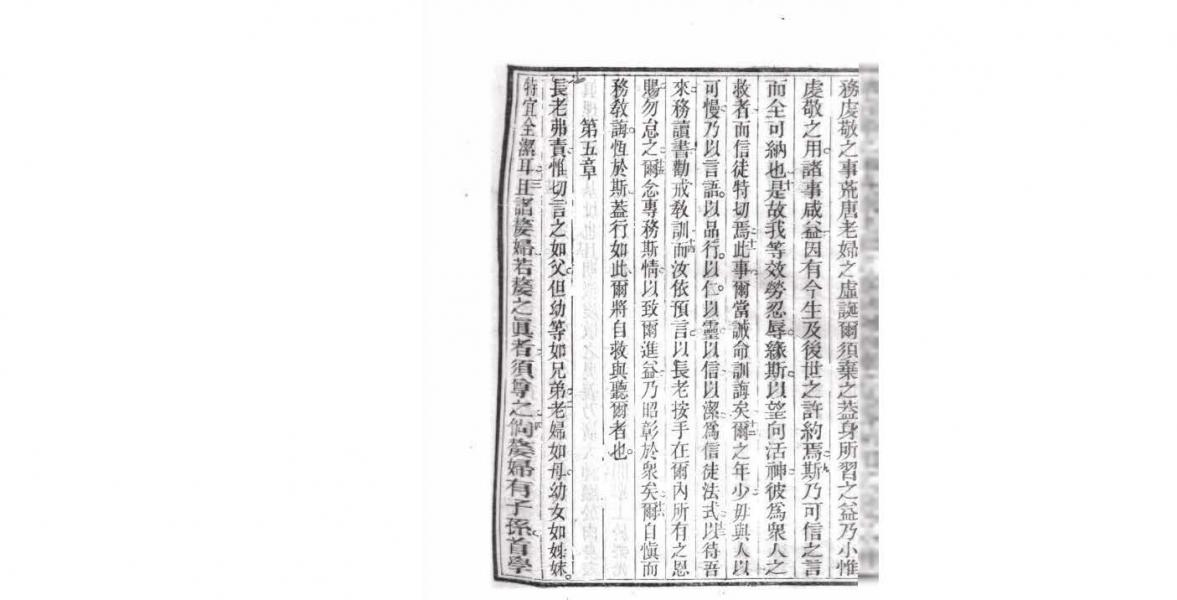 務虔敬之事荒唐老婦之虛誕爾須棄之葢身所習之益乃小惟
虔敬之用諸事咸益因有今生及後世之許約焉斯乃可信之言
而全可納也十是故我等效勞忍辱緣斯以望向活神彼爲衆人之
救者而信徒特切焉十一此事爾當誡命訓誨矣十二爾之年少毋與人以
可慢乃以言語。以品行。以仁以靈以信以潔爲信徒法式十三以待吾
來務讀書勸戒敎訓十四而汝依預言以長老按手在爾內所有之恩
賜勿怠之十五爾念專務斯情以致爾進益乃昭彰於衆矣十六爾自愼而
務敎誨。恆於斯葢行如此爾將自救與聽爾者也。
第五章
長老弗責惟切言之如父但幼等如兄弟二老婦如母幼女如姊妹。
特宜全潔耳三且諸嫠婦若嫠之眞者須尊之四倘嫠婦有子孫首學